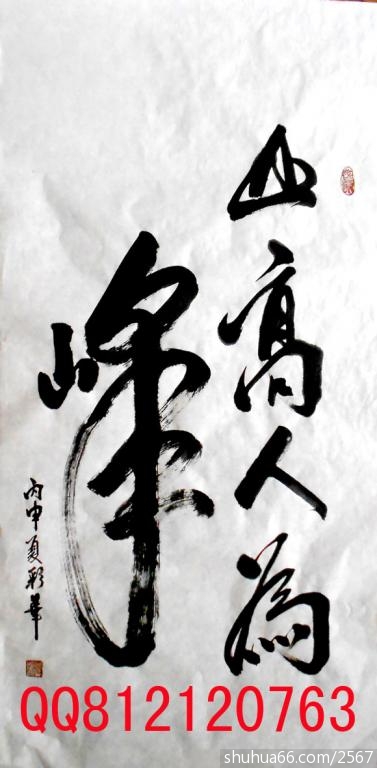 山高人為
峰
丙申夏彩華
QQ812120763
shuhua66.com/2567